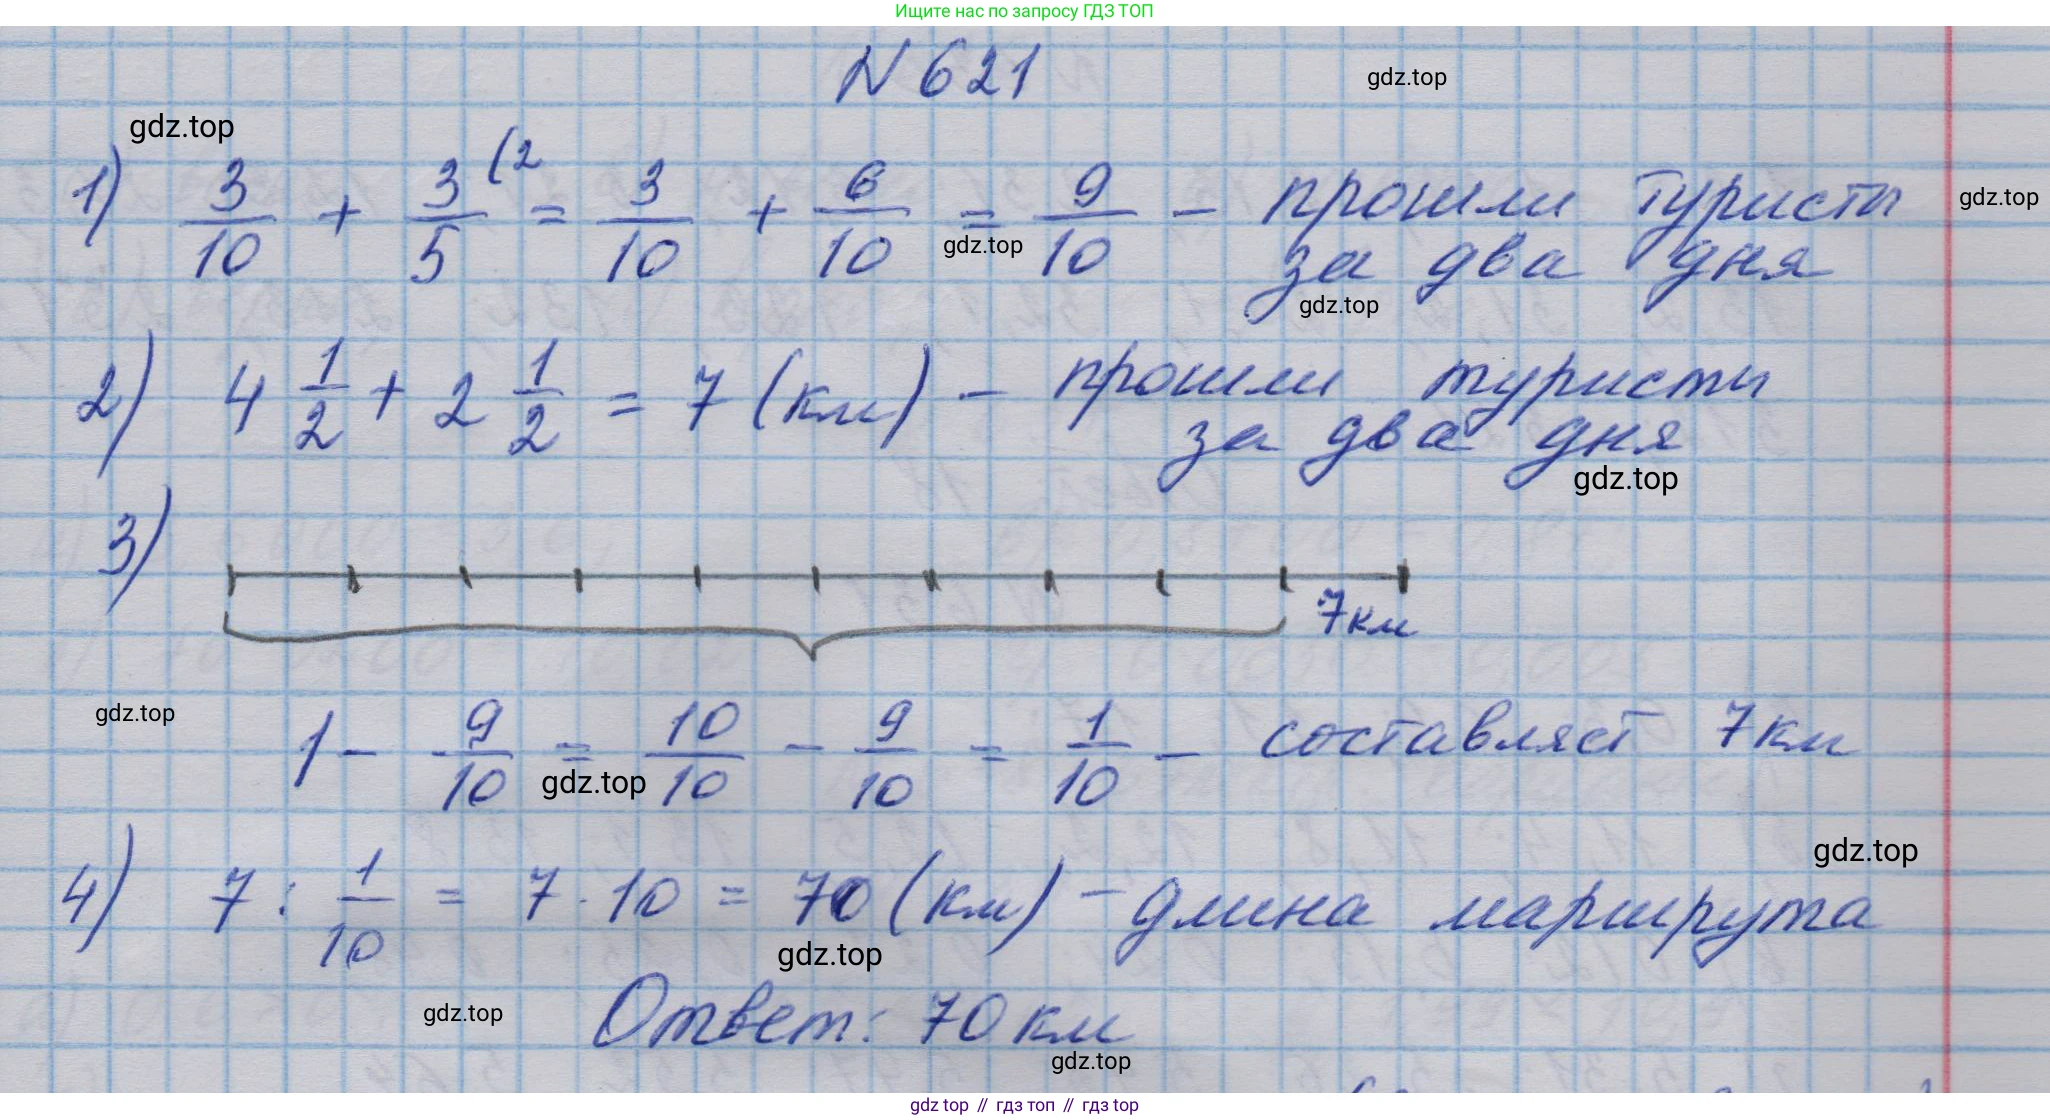 Ищите нас по запросу ГДЗ ТОП
N 621
gdz.top
gdz.top
1) 3/10 + 3/5 (2 = 3/10 + 6/10 = 9/10 - прошли туристы
за два дня
gdz.top
gdz.top
gdz.top
2) 4 1/2 + 2 1/2 = 7 (км) - прошли туристы
за два дня
gdz.top
3)
7км
gdz.top
1 - 9/10 = 10/10 - 9/10 = 1/10 - составляет 7км
gdz.top
gdz.top
4) 7 : 1/10 = 7 · 10 = 70 (км) - длина маршрута
gdz.top
Ответ: 70 км
gdz.top
gdz.top
gdz top // гдз топ // гдз top